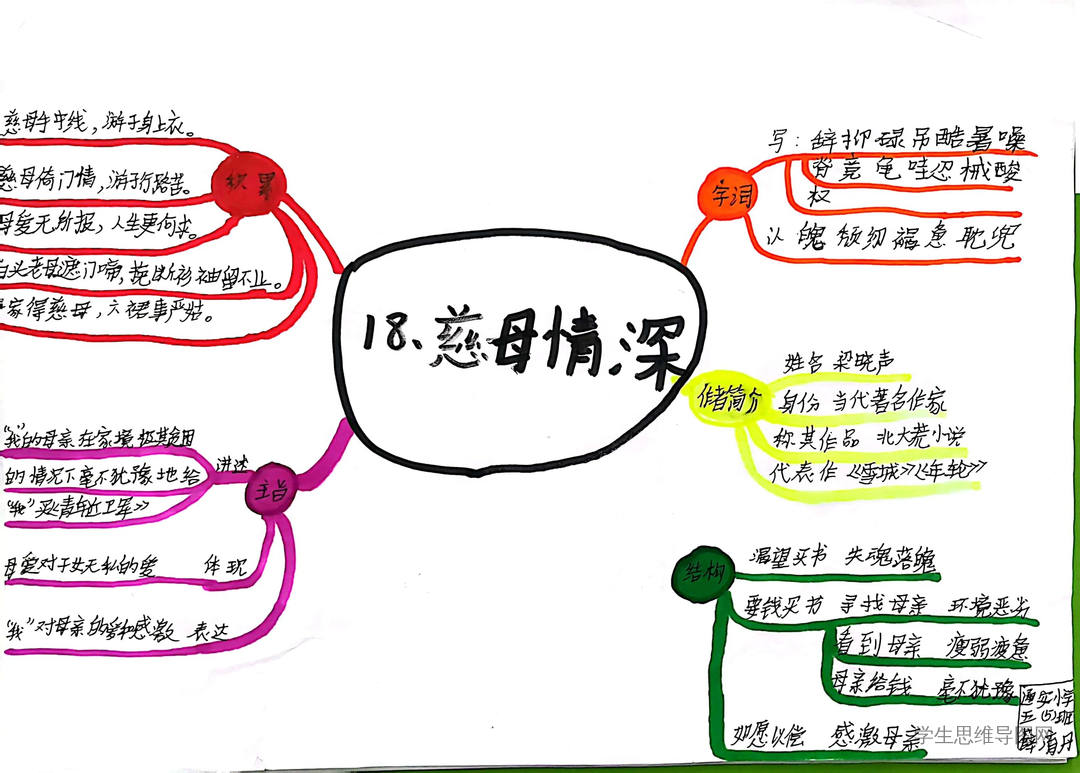 18、慈母情深
积累
慈母手中线，游子身上衣。
慈母倚门情，游子行路苦。
母爱无所报，人生更何求。
白头老母遮门啼，挽断衫袖留不止。
家得慈母，六裙事严姑。
主旨
“我”的母亲在家境极其贫困
的情况下毫不犹豫地给
“我”买《青年近卫军》
讲述
母爱对子女无私的爱 体现
“我”对母亲的爱和感激 表达
字词
写：辞抑球吊酷暑噪
脊竟龟哇忍械酸
权
认 魄 颓纫褐惫耽兜
作者简介
姓名 梁晓声
身份 当代著名作家
称其作品 北大荒小说
代表作《雪城》《年轮》
结构
渴望买书 失魂落魄
要钱买书 寻找母亲 环境恶劣
看到母亲 瘦弱疲惫
母亲给钱 毫不犹豫
如愿以偿 感激母亲
实小学
五(4)班
学生思维导图网